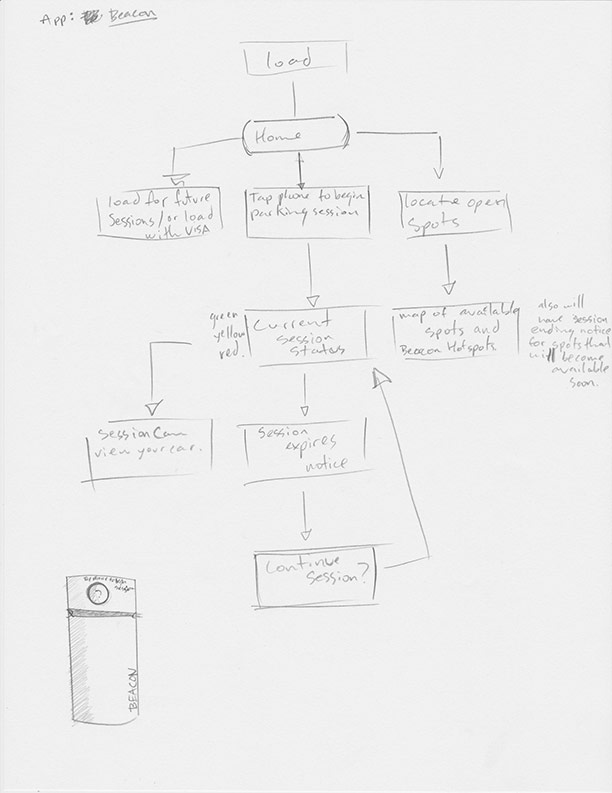 App: Beacon
load
Home
load for future
Sessions/or load
with VISA
Tap phone to begin
parking session
locate open
Spots
green
yellow
red.
Current
Session
Status
map of available
spots and
Beacon Hotspots
also will
have session
ending notice
for spots that
will become
available
soon.
Session Cam
view your car.
Session
expires
notice
Continue
Session?
BEACON